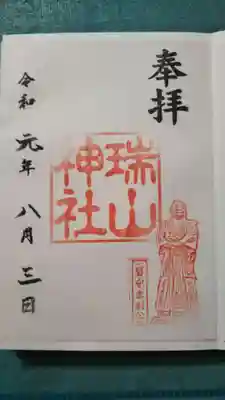 奉拝
瑞山
神社
令和元年八月三日